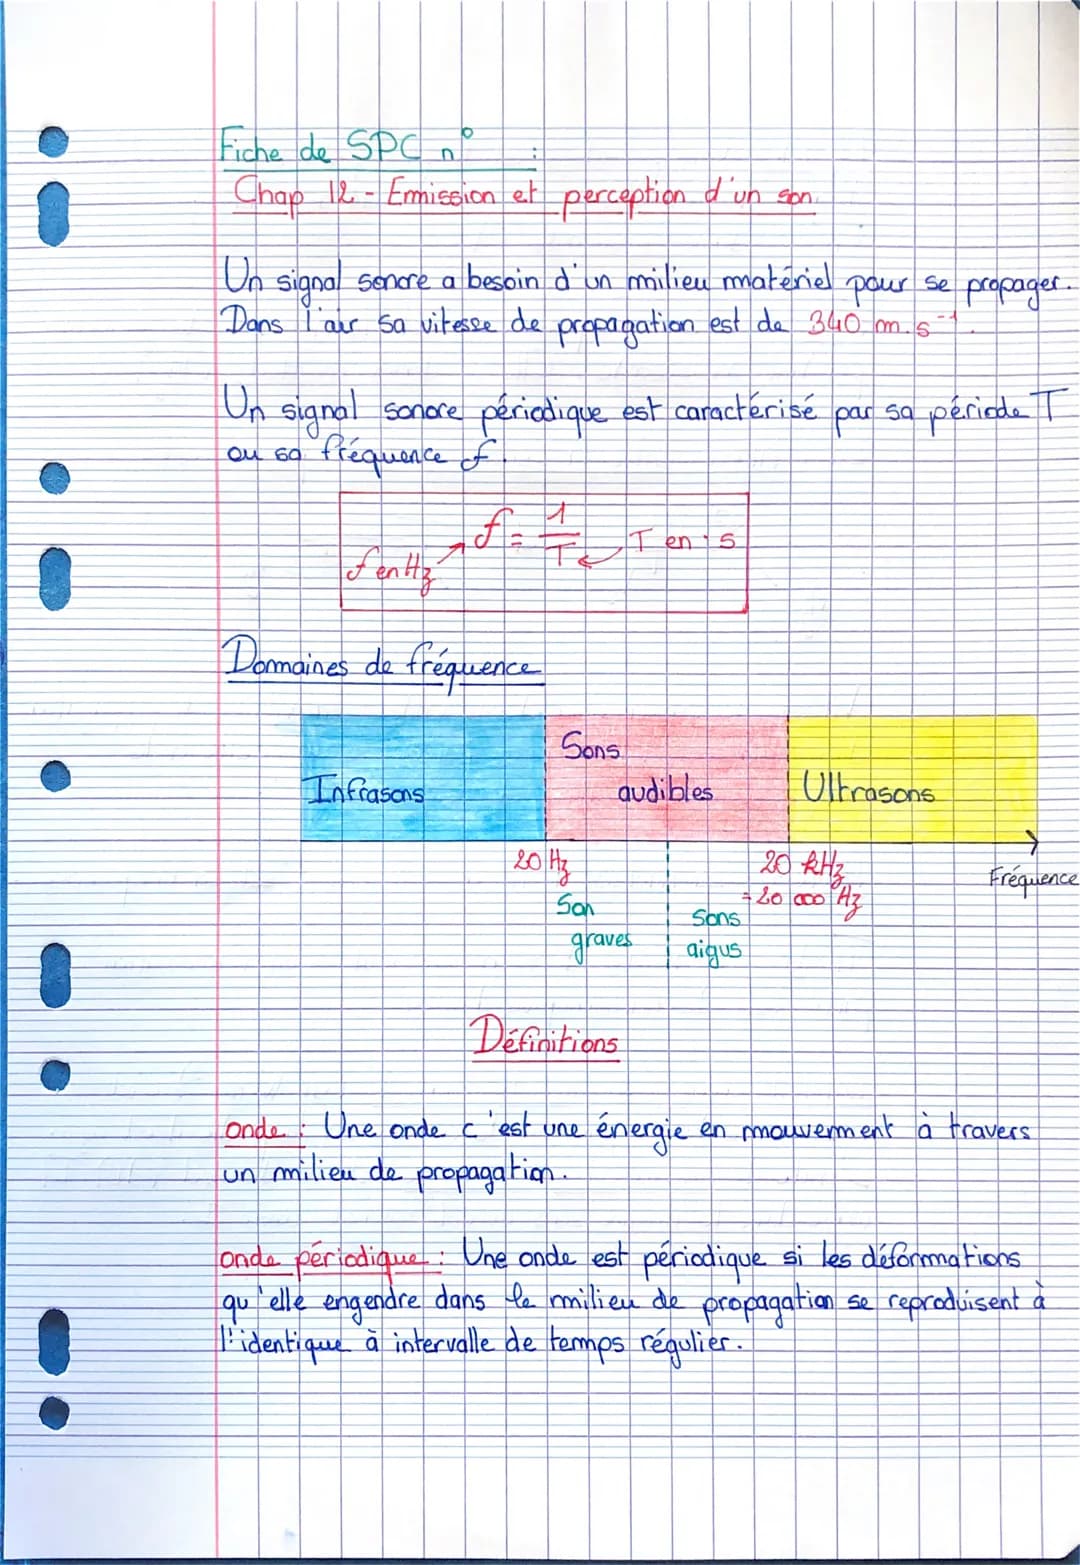 Fiche de SPC n° :
Chap 12 - Emission et perception d'un son.
Un signal sonore a besoin d'un milieu matériel pour se propager.
Dans l'air sa vitesse de propagation est de 340 m.s⁻¹.
Un signal sonore périodique est caractérisé par sa période T
ou sa fréquence f.
f = 1/T
T en s
f en Hz
Domaines de fréquence
Sons
Infrasons audibles Ultrasons
20 Hz 20 kHz Fréquence
= 20 000 Hz
Son Sons
graves aigus
Définitions
onde : Une onde c'est une énergie en mouvement à travers
un milieu de propagation.
onde périodique : Une onde est périodique si les déformations
qu'elle engendre dans le milieu de propagation se reproduisent à
l'identique à intervalle de temps régulier.